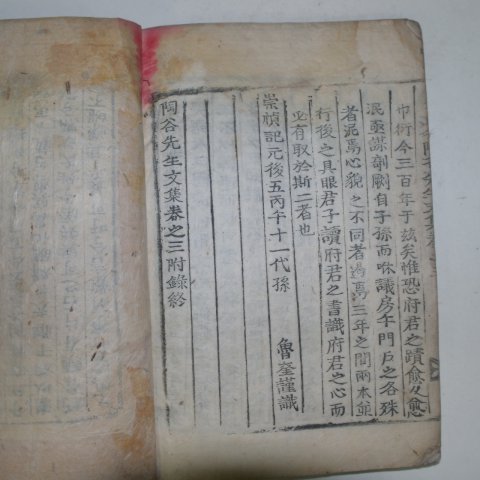 巾衍今三百年于玆矣惟恐府君之蹟愈久愈
泯亟謀剞劂自子孫而咻議房午門戶之各殊
者泥焉心貌之不同者過焉三年之間兩本並
行後之具眼君子讀府君之書識府君之心而
必有取於斯二者也
崇禎記元後五丙午十一代孫
魯奎謹識
陶谷先生文集卷之三附錄終